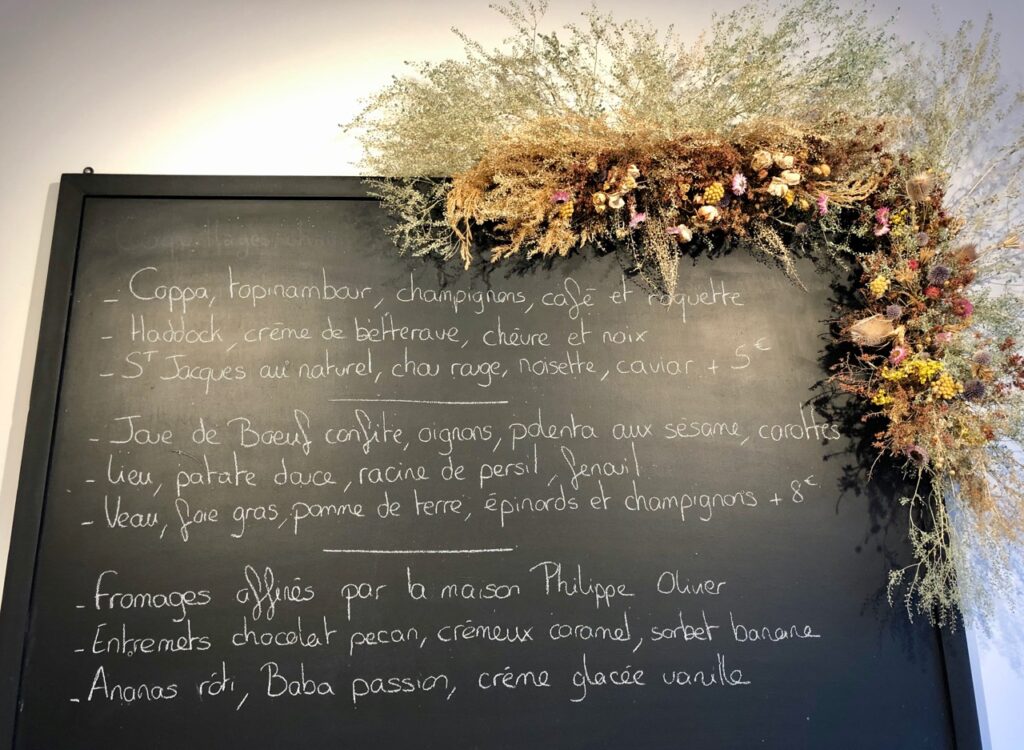 - Coppa, topinambour, champignons, café et roquette
- Haddock, crème de betterave, chèvre et noix
- St Jacques au naturel, chou rouge, noisette, caviar + 5€
- Joue de Boeuf confite, oignons, polenta aux sésame, carottes
- Lieu, patate douce, racine de persil, fenouil
- Veau, foie gras, pomme de terre, épinards et champignons + 8€
- Fromages affinés par la maison Philippe Olivier
- Entremets chocolat pecan, crémeux caramel, sorbet banane
- Ananas rôti, Baba passion, crème glacée vanille